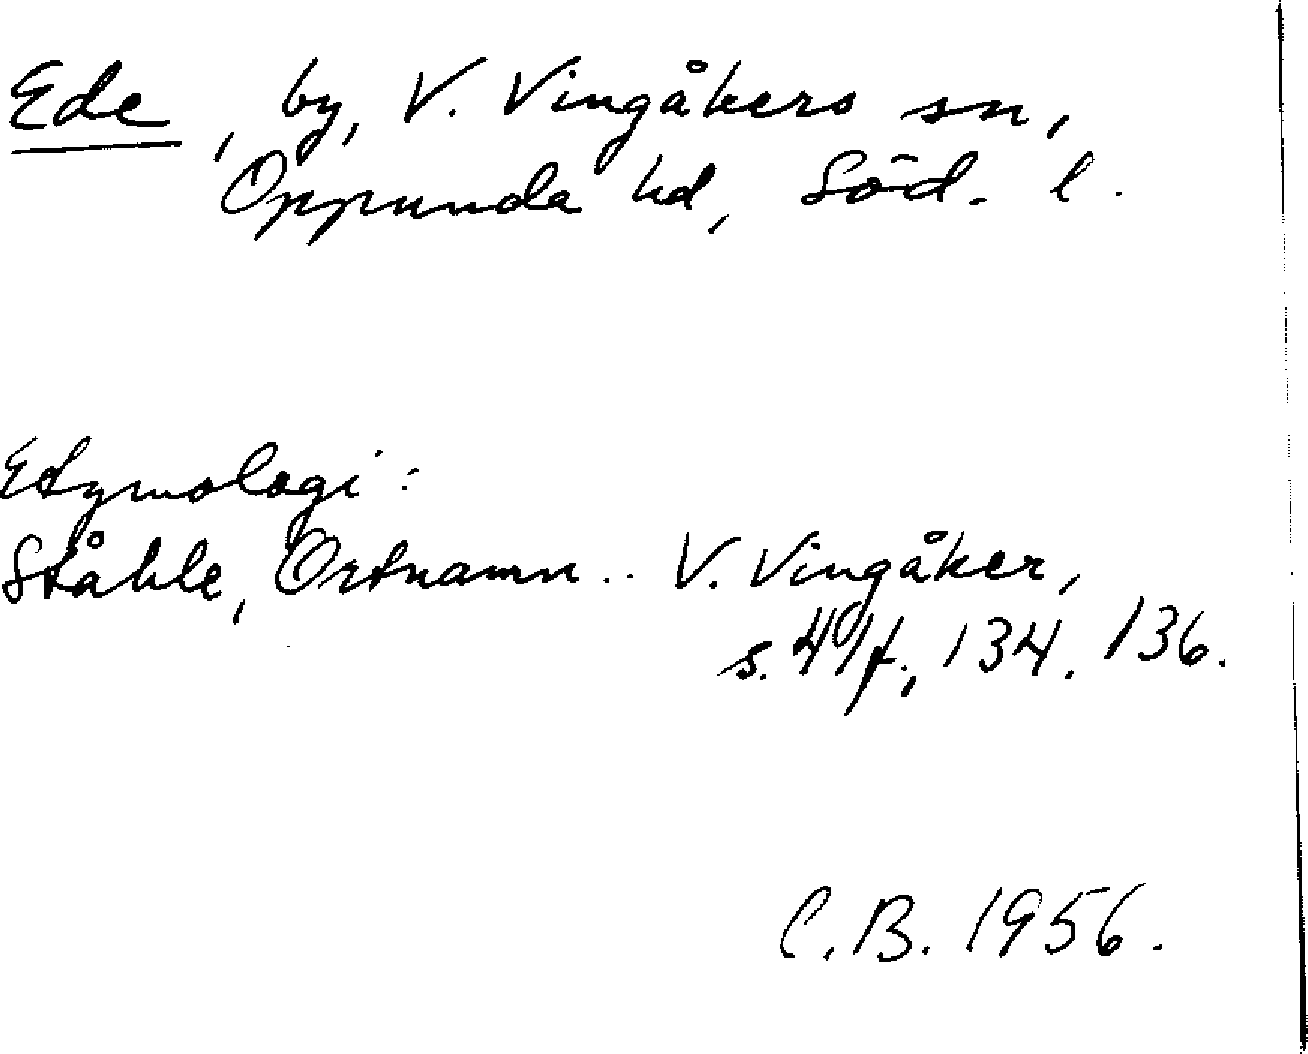 Ede, by, V. Vingåkers sn,
Oppunda hd, Söd. l.
Etymologi:
Ståhle, Ortnamn.. V. Vingåker,
s. 41 f., 134. 136.
C.B. 1956.